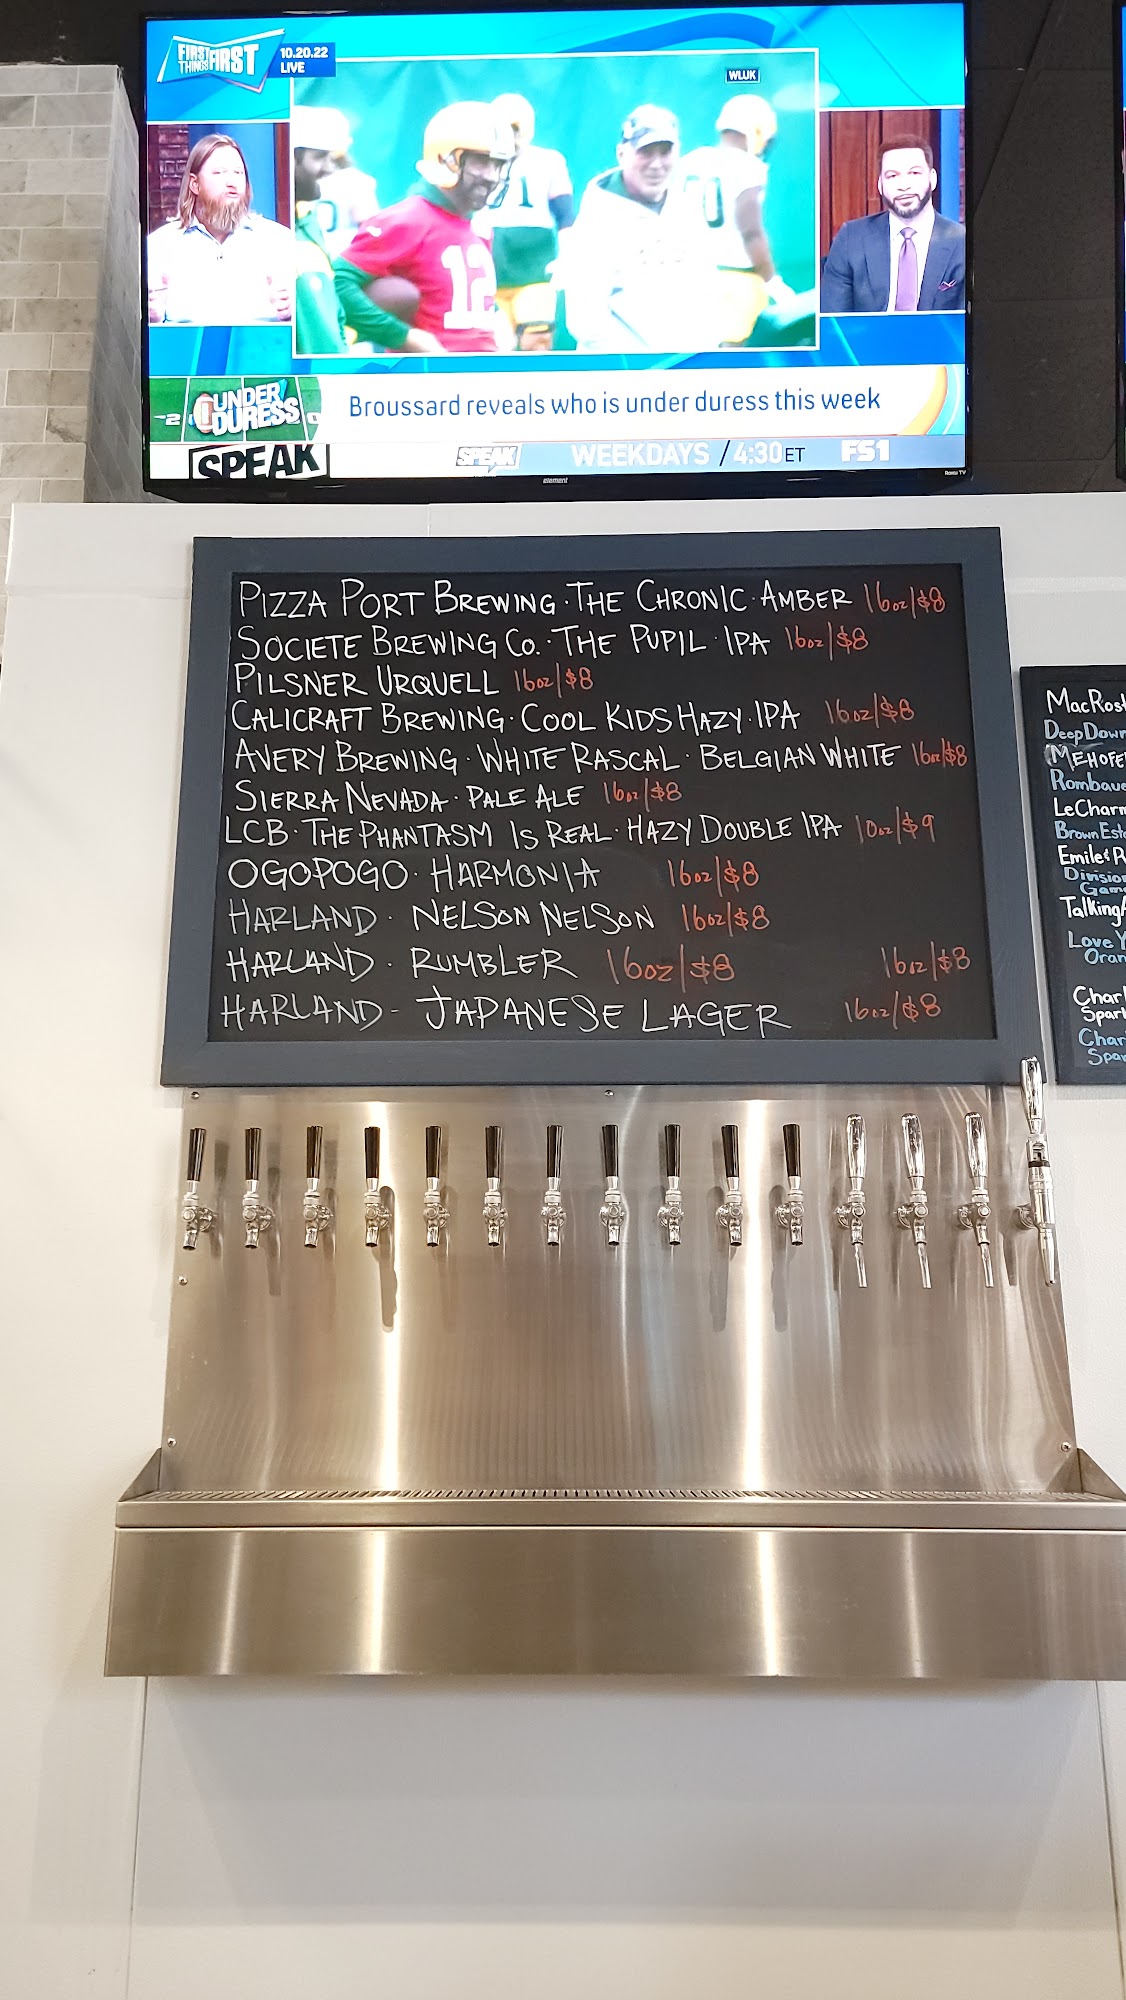 FIRST THINGS FIRST
10.20.22
LIVE
WLUK
12
UNDER
DURESS
Broussard reveals who is under duress this week
SPEAK
SPEAK WEEKDAYS / 4:30 ET FS1
element
Roku TV
PIZZA PORT BREWING · THE CHRONIC · AMBER 16oz/$8
SOCIETE BREWING CO. · THE PUPIL · IPA 16oz/$8
PILSNER URQUELL 16oz/$8
CALICRAFT BREWING · COOL KIDS HAZY · IPA 16oz/$8
AVERY BREWING · WHITE RASCAL · BELGIAN WHITE 16oz/$8
SIERRA NEVADA · PALE ALE 16oz/$8
LCB · THE PHANTASM IS REAL · HAZY DOUBLE IPA 10oz/$9
OGOPOGO · HARMONIA 16oz/$8
HARLAND · NELSON NELSON 16oz/$8
HARLAND · RUMBLER 16oz/$8 16oz/$8
HARLAND - JAPANESE LAGER 16oz/$8
MacRost
Deep Down
Rombaue
LeCharm
Brown Est
Emile & R
Division
Game
Talking
Love Y
Oran
Charl
Spart
Char
Spa